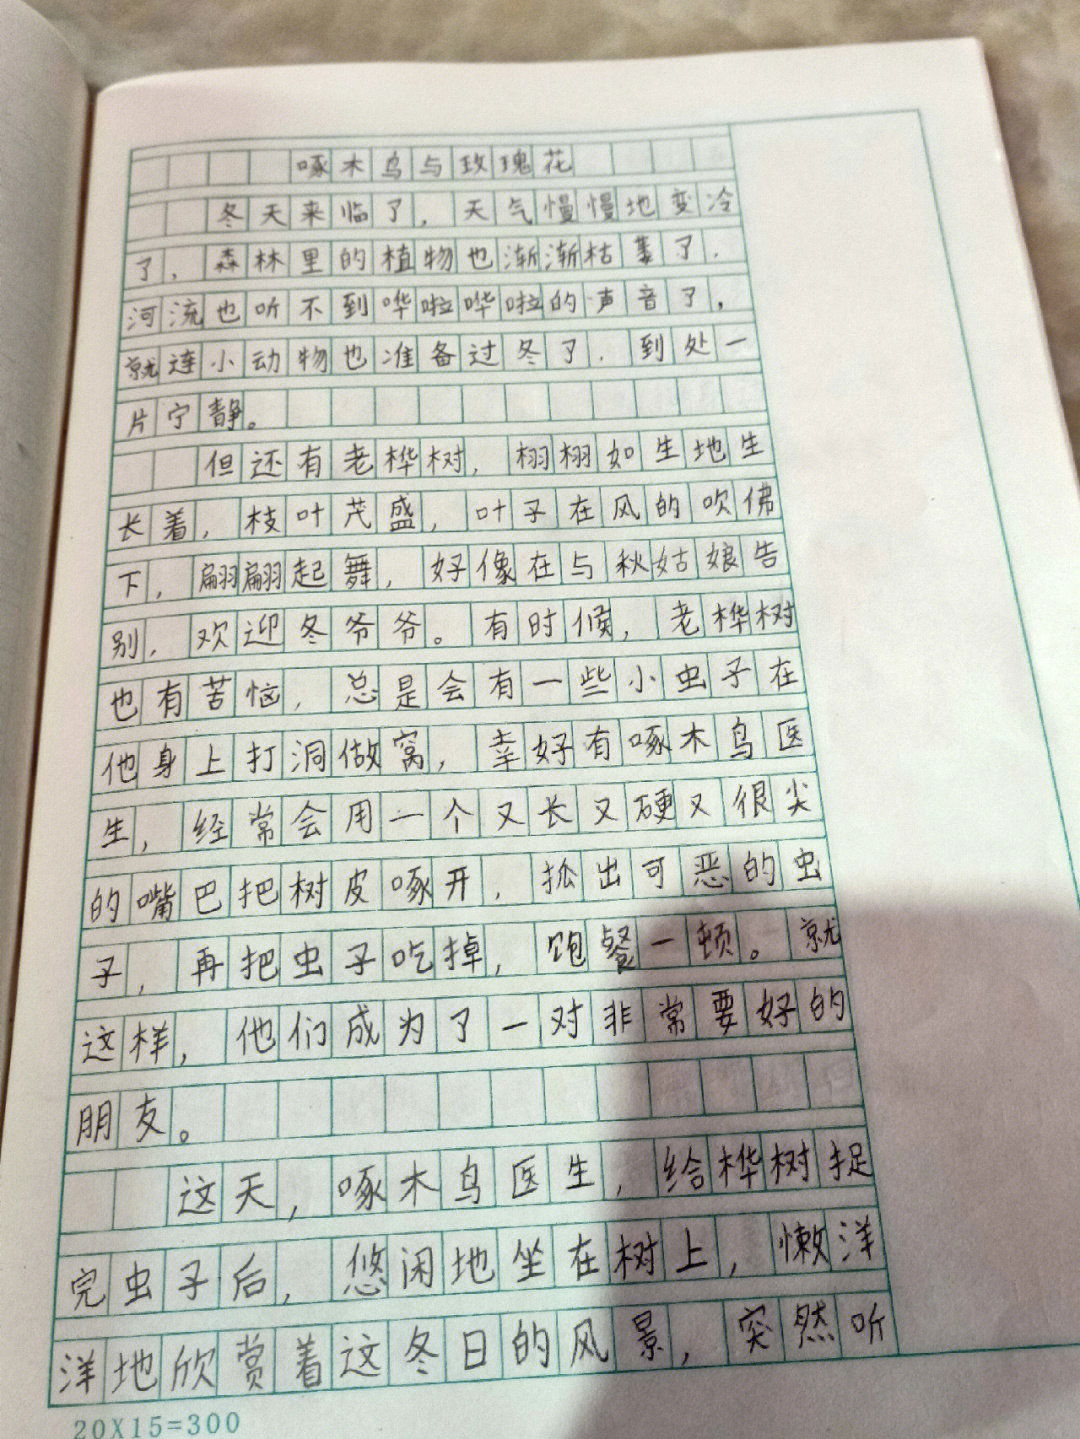 啄木鸟与玫瑰花
冬天来临了，天气慢慢地变冷
了，森林里的植物也渐渐枯萎了，
河流也听不到哗啦哗啦的声音了，
就连小动物也准备过冬了，到处一
片宁静。
但还有老桦树，栩栩如生地生
长着，枝叶茂盛，叶子在风的吹佛
下，翩翩起舞，好像在与秋姑娘告
别，欢迎冬爷爷。有时候，老桦树
也有苦恼，总是会有一些小虫子在
他身上打洞做窝，幸好有啄木鸟医
生，经常会用一个又长又硬又很尖
的嘴巴把树皮啄开，抓出可恶的虫
子，再把虫子吃掉，饱餐一顿。就
这样，他们成为了一对非常要好的
朋友。
这天，啄木鸟医生，给桦树捉
完虫子后，悠闲地坐在树上，懒洋
洋地欣赏着这冬日的风景，突然听
20X15=300